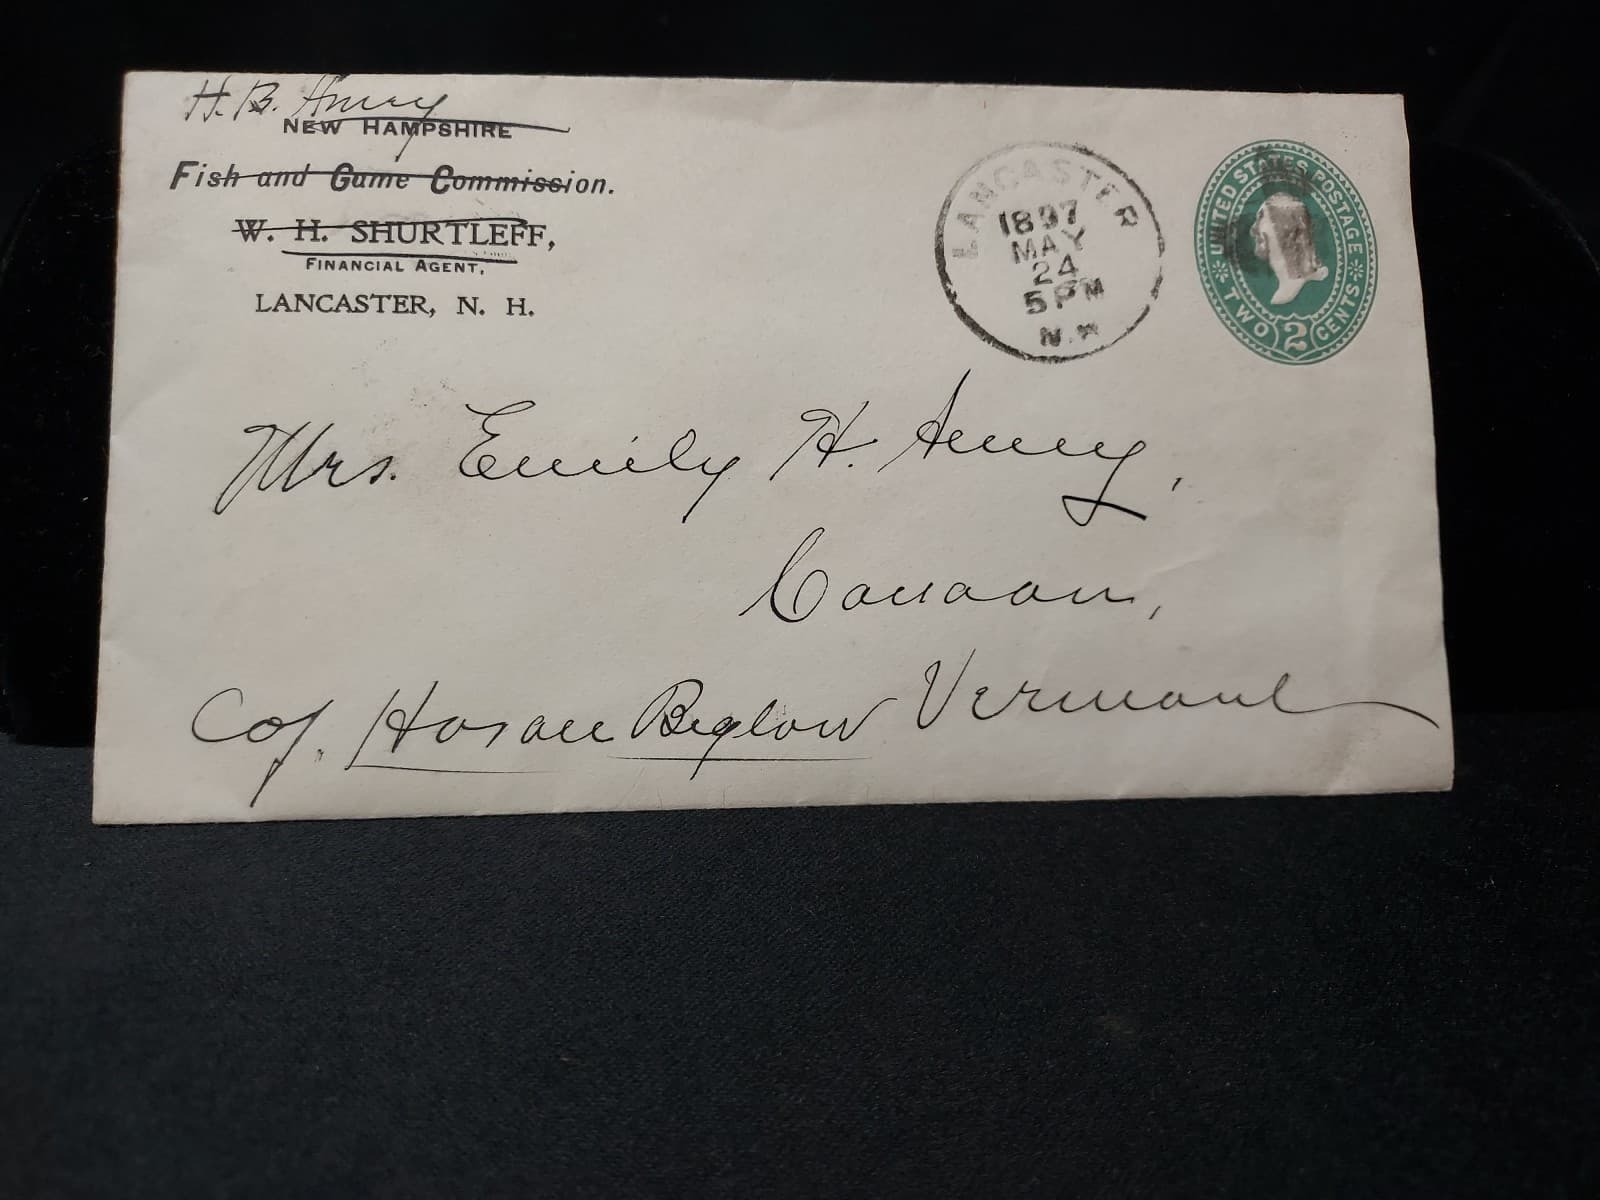 H. B. Amey
NEW HAMPSHIRE
Fish and Game Commission.
W. H. SHURTLEFF,
FINANCIAL AGENT,
LANCASTER, N. H.
LANCASTER
1897
MAY
24
5 PM
N.H.
UNITED STATES POSTAGE
TWO 2 CENTS
Mrs. Emily H. Amey,
Canaan,
Vermont
c/o. Horace Biglow